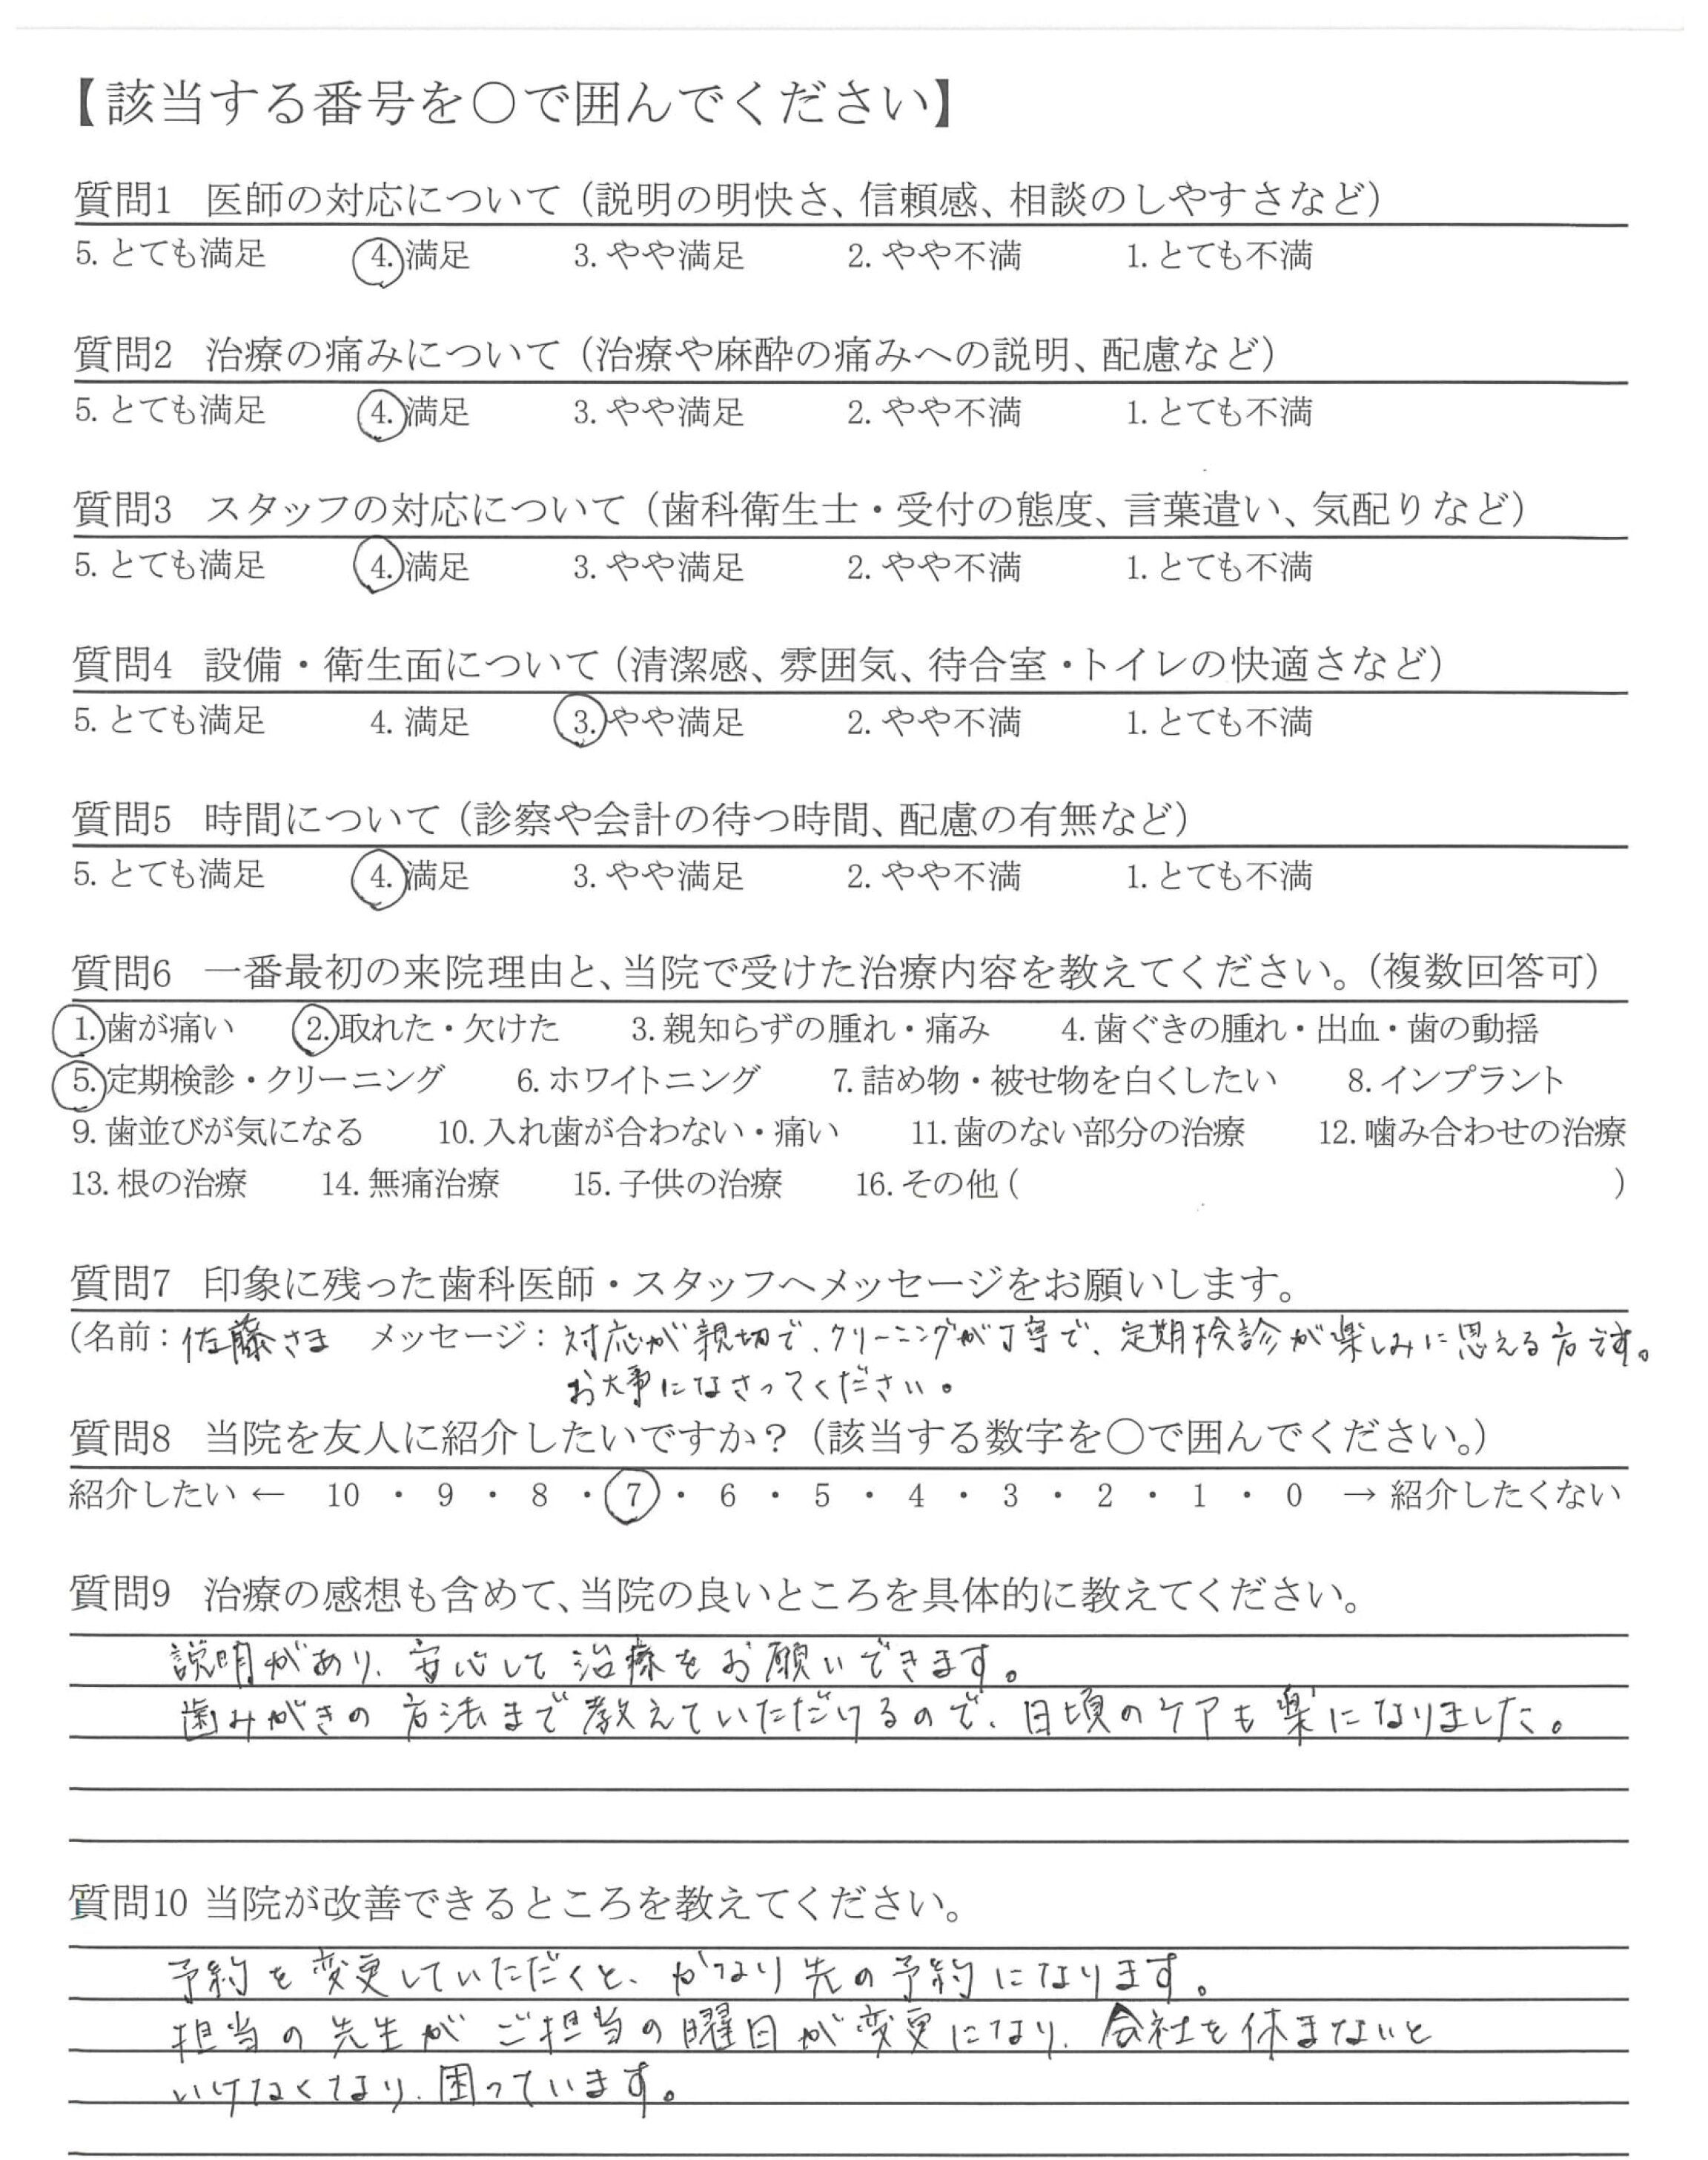 【該当する番号を○で囲んでください】
質問1 医師の対応について（説明の明快さ、信頼感、相談のしやすさなど）
5. とても満足 4. 満足 3. やや満足 2. やや不満 1. とても不満
質問2 治療の痛みについて（治療や麻酔の痛みへの説明、配慮など）
5. とても満足 4. 満足 3. やや満足 2. やや不満 1. とても不満
質問3 スタッフの対応について（歯科衛生士・受付の態度、言葉遣い、気配りなど）
5. とても満足 4. 満足 3. やや満足 2. やや不満 1. とても不満
質問4 設備・衛生面について（清潔感、雰囲気、待合室・トイレの快適さなど）
5. とても満足 4. 満足 3. やや満足 2. やや不満 1. とても不満
質問5 時間について（診察や会計の待つ時間、配慮の有無など）
5. とても満足 4. 満足 3. やや満足 2. やや不満 1. とても不満
質問6 一番最初の来院理由と、当院で受けた治療内容を教えてください。（複数回答可）
1. 歯が痛い 2. 取れた・欠けた 3. 親知らずの腫れ・痛み 4. 歯ぐきの腫れ・出血・歯の動揺
5. 定期検診・クリーニング 6. ホワイトニング 7. 詰め物・被せ物を白くしたい 8. インプラント
9. 歯並びが気になる 10. 入れ歯が合わない・痛い 11. 歯のない部分の治療 12. 噛み合わせの治療
13. 根の治療 14. 無痛治療 15. 子供の治療 16. その他（ ）
質問7 印象に残った歯科医師・スタッフへメッセージをお願いします。
（名前：佐藤さま メッセージ：対応が親切で、クリーニングが丁寧で、定期検診が楽しみに思える方です。
お大事になさってください。
質問8 当院を友人に紹介したいですか？（該当する数字を○で囲んでください。）
紹介したい ← 10 ・ 9 ・ 8 ・ 7 ・ 6 ・ 5 ・ 4 ・ 3 ・ 2 ・ 1 ・ 0 → 紹介したくない
質問9 治療の感想も含めて、当院の良いところを具体的に教えてください。
説明があり、安心して治療をお願いできます。
歯みがきの方法まで教えていただけるので、日頃のケアも楽になりました。
質問10 当院が改善できるところを教えてください。
予約を変更していただくと、かなり先の予約になります。
担当の先生がご担当の曜日が変更になり、会社を休まないと
いけなくなり、困っています。